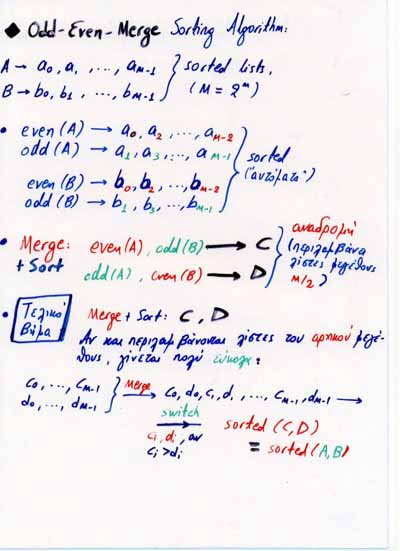 ◆ Odd-Even-Merge Sorting Algorithm:
A → a₀, a₁, ..., a_{M-1} } sorted lists,
B → b₀, b₁, ..., b_{M-1} } (M = 2^m)
• even(A) → a₀, a₂, ..., a_{M-2}
odd(A) → a₁, a₃, ..., a_{M-1}
even(B) → b₀, b₂, ..., b_{M-2}
odd(B) → b₁, b₃, ..., b_{M-1}
} sorted
("αυτόματα")
• Merge: even(A), odd(B) → C
+ Sort odd(A), even(B) → D
} αναδρομή
(περιλαμβάνει
λίστες μεγέθους
M/2 )
• Τελικό
Βήμα
Merge + Sort: C, D
Αν και περιλαμβάνονται λίστες του αρχικού μεγέ-
θους, γίνεται πολύ εύκολα:
c₀, ..., c_{M-1} } Merge → c₀, d₀, c₁, d₁, ..., c_{M-1}, d_{M-1} →
d₀, ..., d_{M-1}
switch →
cᵢ, dᵢ, αν
cᵢ > dᵢ
sorted (C, D)
= sorted (A, B)